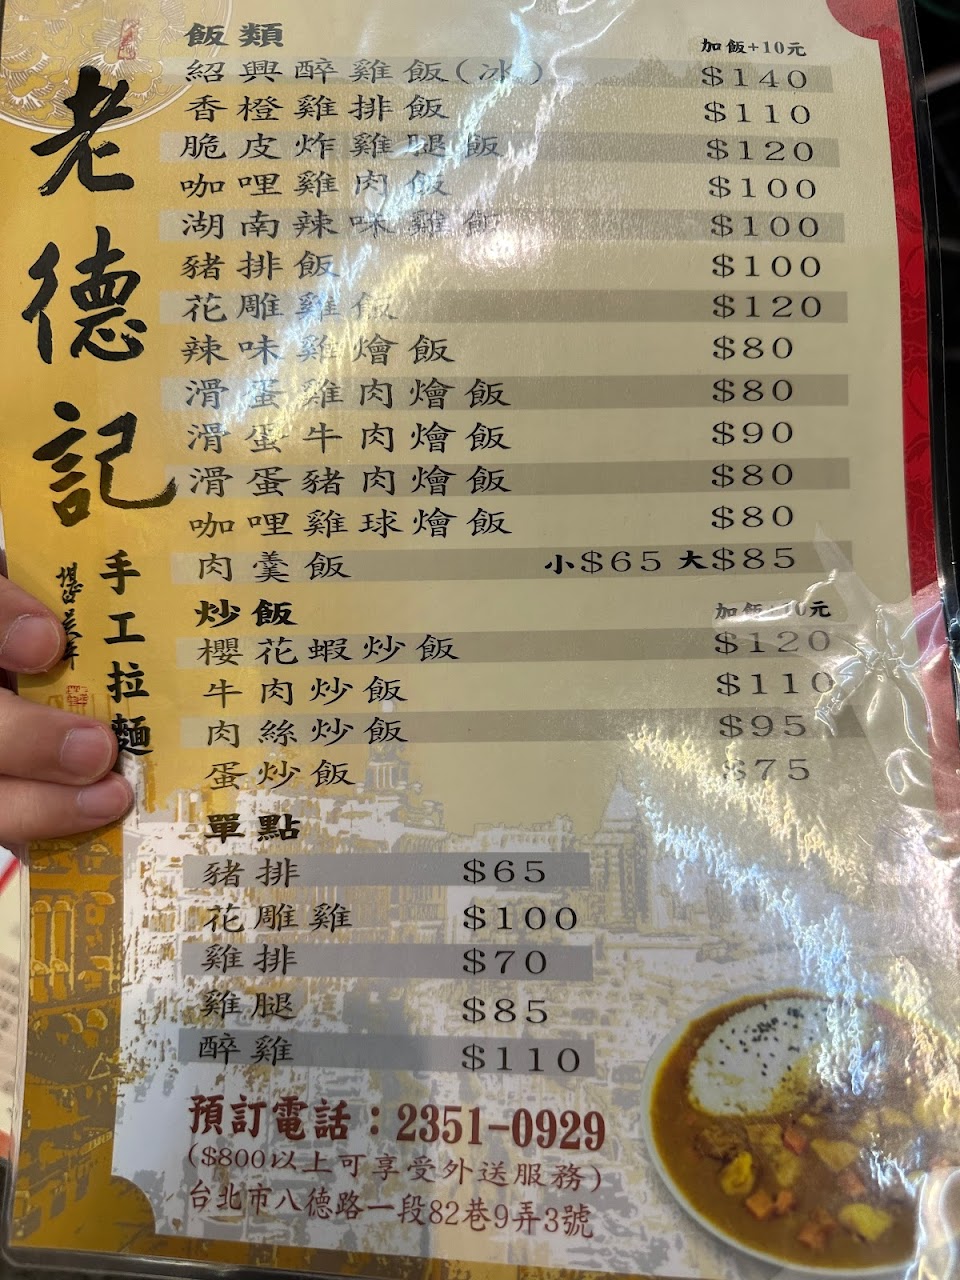 老德記
手工拉麵
飯類 加飯+10元
紹興醉雞飯(冰) $140
香橙雞排飯 $110
脆皮炸雞腿飯 $120
咖哩雞肉飯 $100
湖南辣味雞飯 $100
豬排飯 $100
花雕雞飯 $120
辣味雞燴飯 $80
滑蛋雞肉燴飯 $80
滑蛋牛肉燴飯 $90
滑蛋豬肉燴飯 $80
咖哩雞球燴飯 $80
肉羹飯 小$65 大$85
炒飯 加飯+10元
櫻花蝦炒飯 $120
牛肉炒飯 $110
肉絲炒飯 $95
蛋炒飯 $75
單點
豬排 $65
花雕雞 $100
雞排 $70
雞腿 $85
醉雞 $110
預訂電話：2351-0929
($800以上可享受外送服務)
台北市八德路一段82巷9弄3號